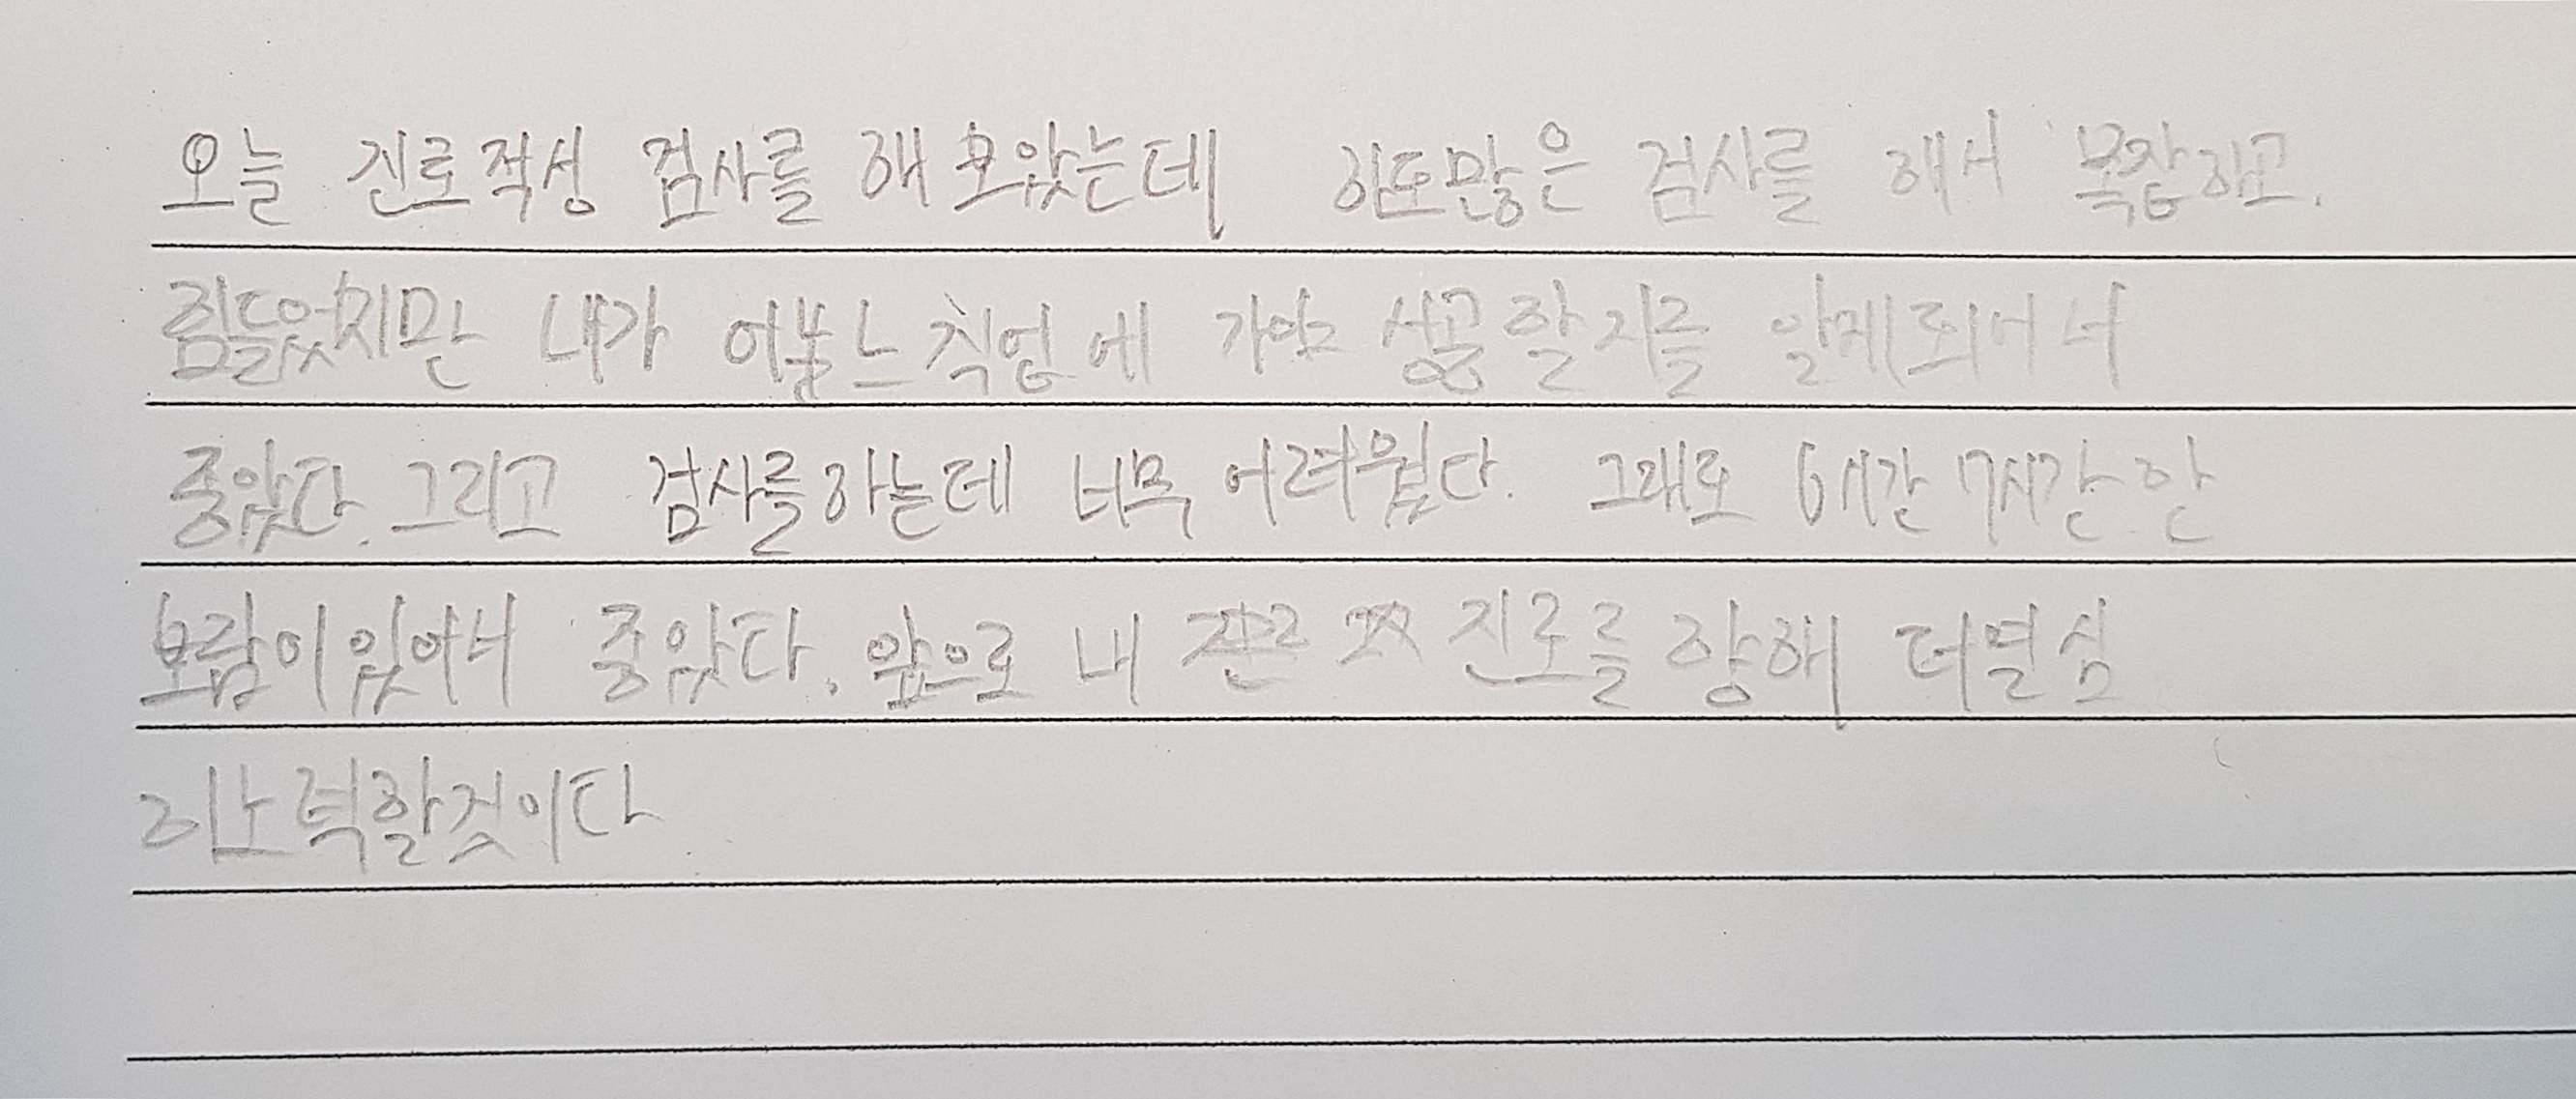 오늘 진로적성 검사를 해 보았는데 하도많은 검사를 해서 복잡하고.
힘들었지만 내가 어느 직업에 가야 성공할지를 알게되어서
좋았다. 그리고 검사를하는데 너무 어려웠다. 그래도 6시간 7시간 한
보람이 있어서 좋았다. 앞으로 내 진로를 향해 더열심
히노력할것이다